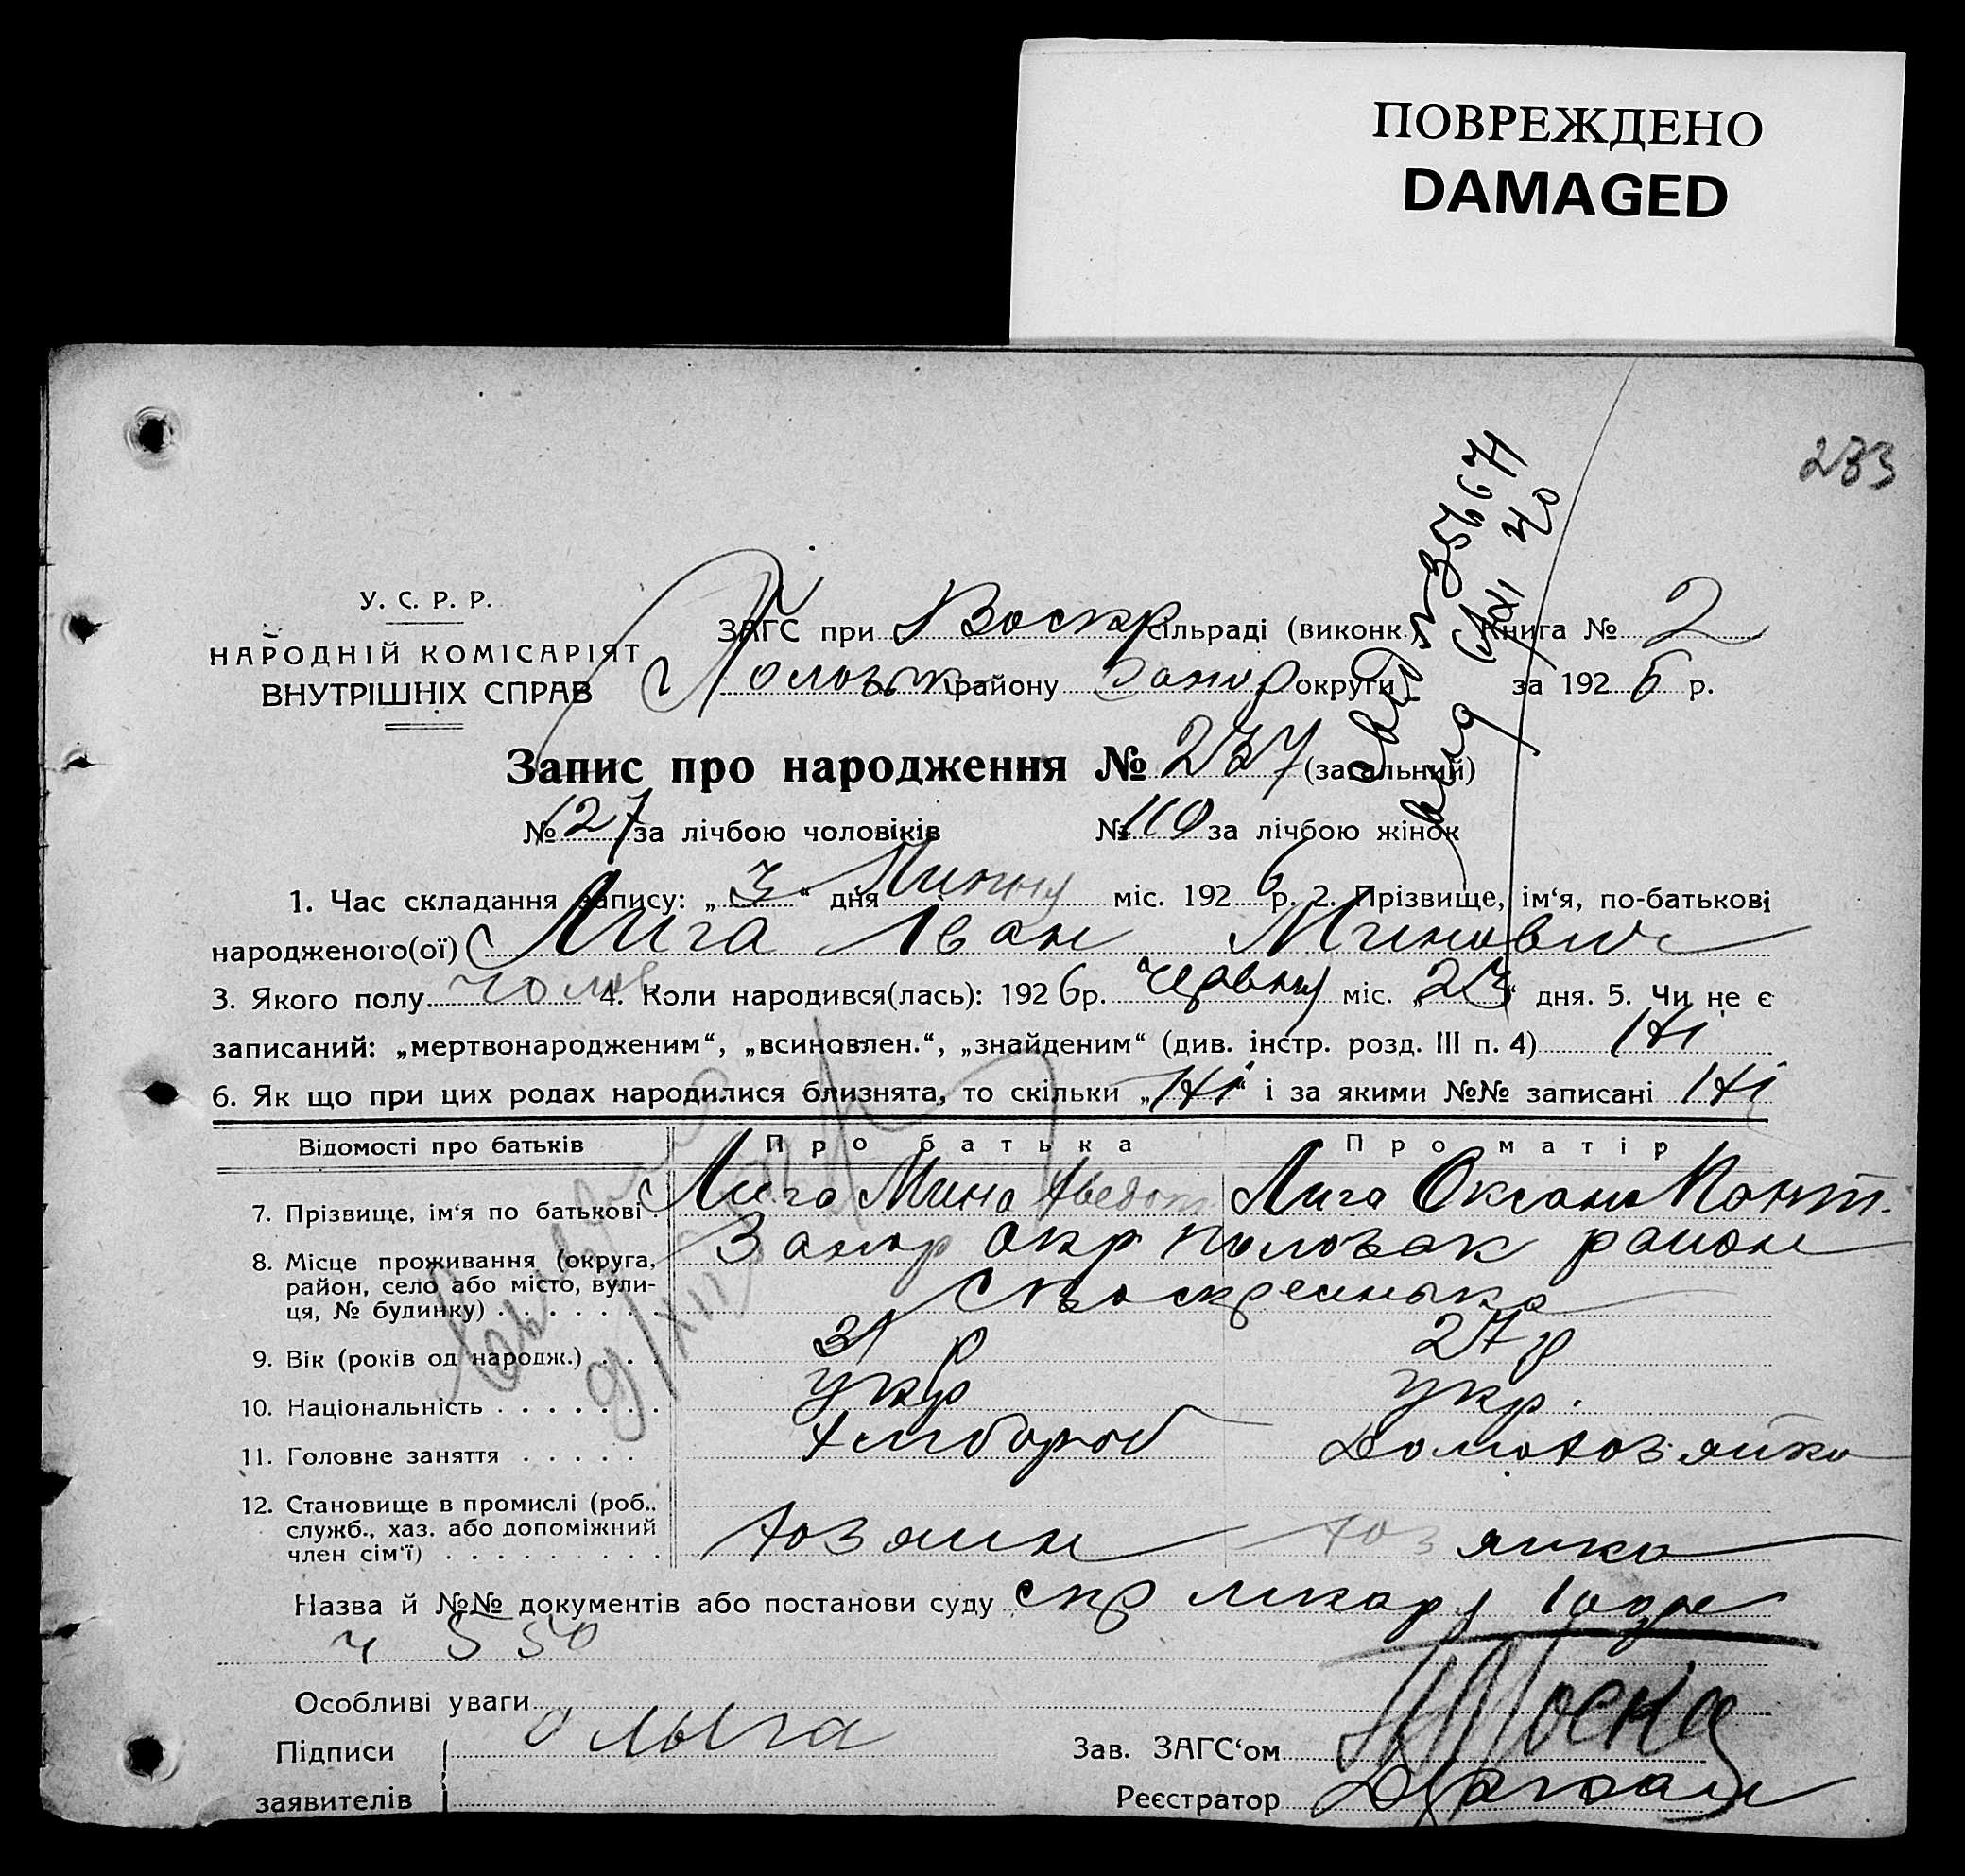 ПОВРЕЖДЕНО
DAMAGED
233
У. С. Р. Р.
НАРОДНІЙ КОМІСАРІЯТ
ВНУТРІШНІХ СПРАВ
ЗАГС при Воскр сільраді (виконк.) Книга № 2
Пологськ району Запор округи за 192 6 р.
Запис про народження № 237 (загальний)
№ 127 за лічбою чоловіків № 110 за лічбою жінок
1. Час складання запису: „ 3 “ дня Липня міс. 192 6 р. 2. Прізвище, ім‘я, по-батькові
народженого(ої) Лига Іван Минович
3. Якого полу чолов 4. Коли народився(лась): 192 6 р. червня міс. „ 23 “ дня. 5. Чи не є
записаний: „мертвонародженим“, „всиновлен.“, „знайденим“ (див. інстр. розд. III п. 4) Ні
6. Як що при цих родах народилися близнята, то скільки „ Ні “ і за якими №№ записані Ні
Відомості про батьків Про батька Про матір
7. Прізвище, ім‘я по батькові . Лига Мина Лига Оксана Пант.
8. Місце проживання (округа, район, село або місто, вулиця, № будинку) . . . . . . . Запор окр район
9. Вік (років од народж.) . . . 31 р 27 р
10. Національність . . . . . . . укр укр.
11. Головне заняття . . . . . Хлібороб Домохозяйка
12. Становище в промислі (роб., служб., хаз. або допоміжний член сім‘ї) . . . . . . . . . хозяин хозяйка
Назва й №№ документів або постанови суду
ч 550
Особливі уваги
Підписи О Лыга Зав. ЗАГС‘ом
заявителів Реєстратор